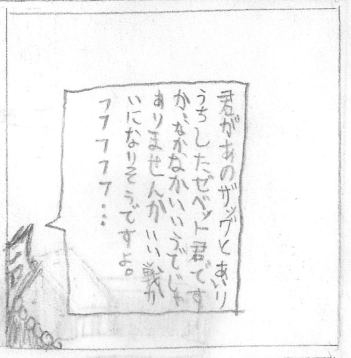 君があのザッグとあいり
うちしたゼベット君です
か、なかなかいいうでじゃ
ありませんかいい戦か
いになりそうですよ。
フフフフフ…